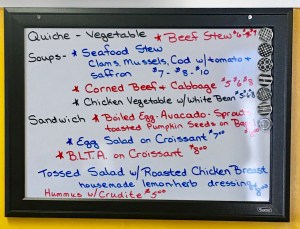 Quiche - Vegetable * Beef Stew
Soups - * Seafood Stew
Clams, Mussels, Cod w/tomato +
saffron $7 - $8 - $10
* Corned Beef + Cabbage $5 $6 $8
* Chicken Vegetable w/White Bean
Sandwich * Boiled Egg - Avacado - Sprouts
toasted Pumpkin Seeds on
* Egg Salad on Croissant
* B.L.T.A. on Croissant
Tossed Salad w/Roasted Chicken Breast
housemade lemon herb dressing
Hummus w/Crudite